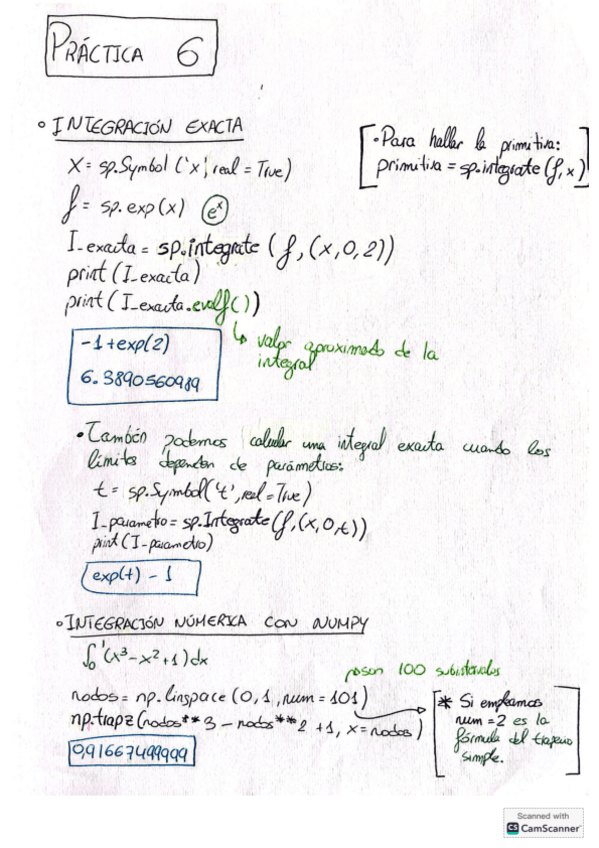 PRÁCTICA 6
◦ INTEGRACIÓN EXACTA
X = sp.Symbol ('x', real = True)
f = sp.exp(x) (e^x)
I_exacta = sp.integrate (f, (x, 0, 2))
print (I_exacta)
print (I_exacta.evalf())
↳ valor aproximado de la
integral
[• Para hallar la primitiva:
primitiva = sp.integrate (f, x)]
-1 + exp(2)
6.3890560989
• También podemos calcular una integral exacta cuando los
límites dependen de parámetros:
t = sp.Symbol('t', real = True)
I_parametro = sp.Integrate (f, (x, 0, t))
print (I_parametro)
exp(t) - 1
◦ INTEGRACIÓN NÚMERICA CON NUMPY
∫₀¹ (x³ - x² + 1) dx
son 100 subintervalos
nodos = np.linspace (0, 1, num = 101)
np.trapz (nodos**3 - nodos**2 + 1, x = nodos)
[* Si empleamos
num = 2 es la
fórmula del trapecio
simple.]
0,91667499999
Scanned with
CS CamScanner